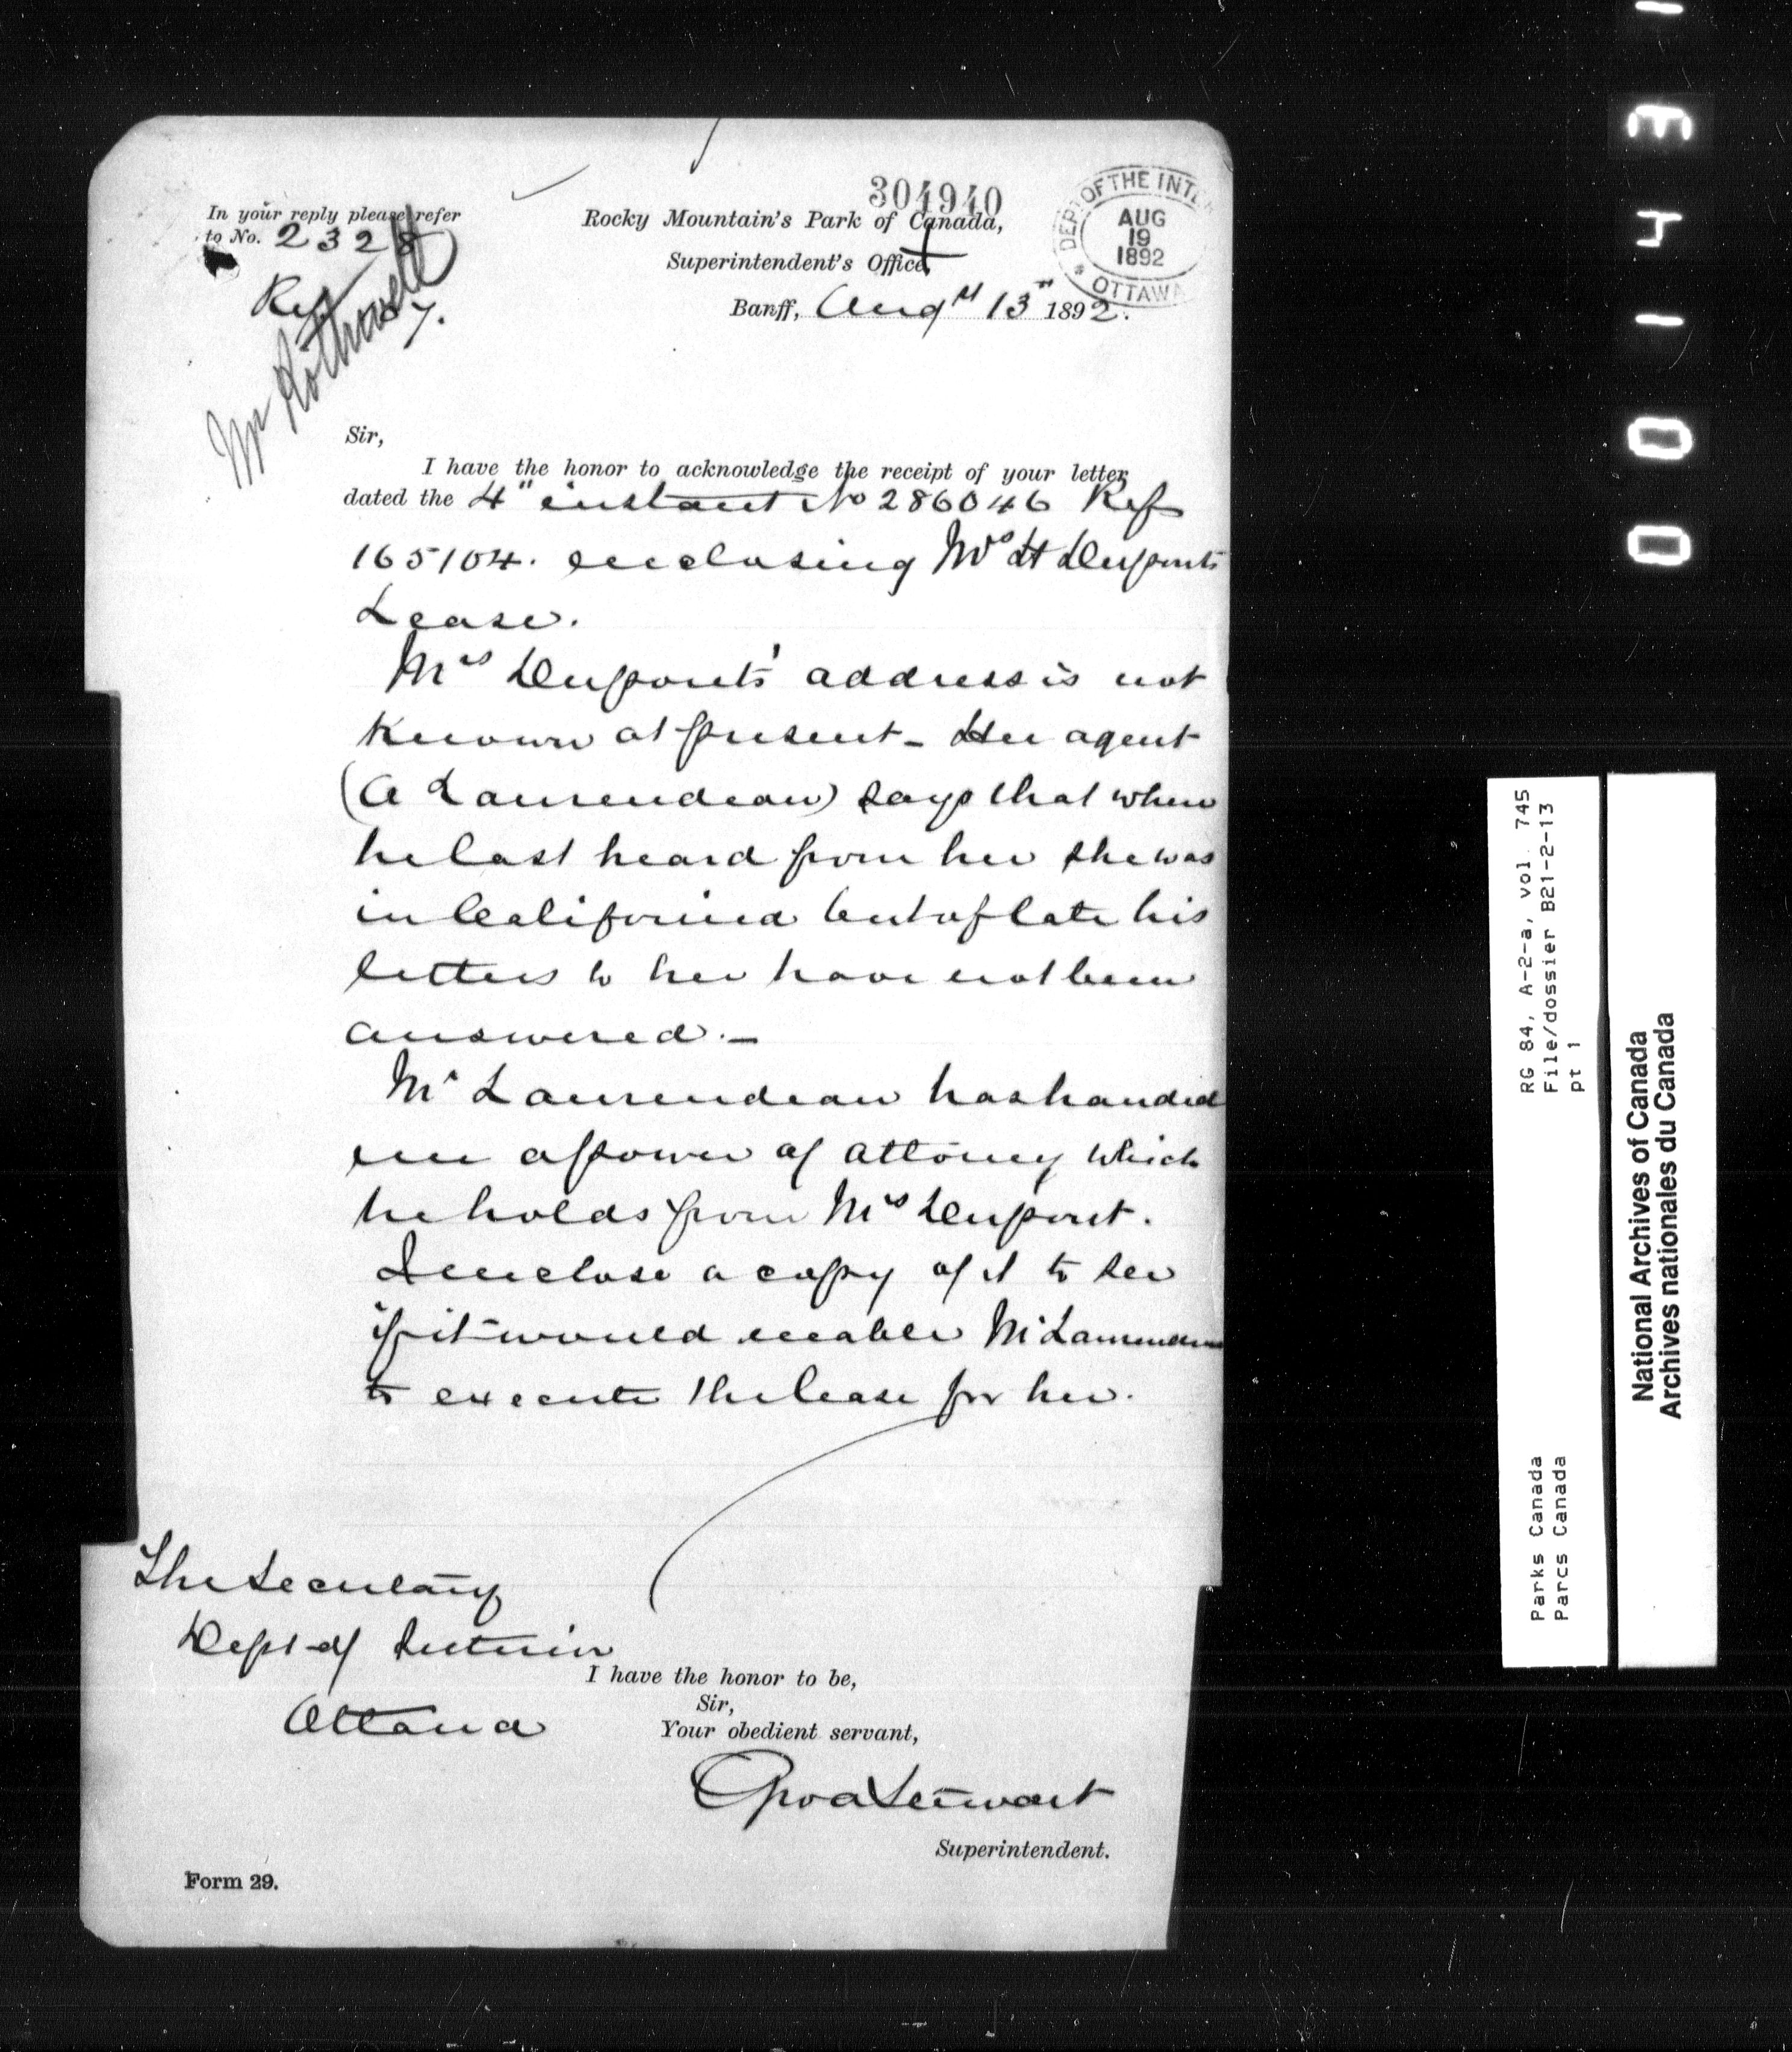 304940
DEPT OF THE INT
AUG
19
1892
* OTTAWA
In your reply please refer
to No. 2328
Ref
Mr Rothwell
Rocky Mountain's Park of Canada,
Superintendent's Office,
Banff, Augst 13" 1892.
Sir,
I have the honor to acknowledge the receipt of your letter
dated the 4" instant No 286046 Ref
165104. enclosing Mrs Dupont's
Lease.
Mrs Dupont's address is not
known at present - Her agent
(A Laurendeau) says that when
he last heard from her she was
in California but of late his
letters to her have not been
answered. -
Mr Laurendeau has handed
me a power of attorney which
he holds from Mrs Dupont.
I enclose a copy of it to see
if it would enable Mr Laurendeau
to execute the lease for her.
The Secretary
Dept of Interior
Ottawa
I have the honor to be,
Sir,
Your obedient servant,
Geo A Stewart
Superintendent.
Form 29.
RG 84, A-2-a, vol. 745
File/dossier B21-2-13
pt 1
Parks Canada
Parcs Canada
National Archives of Canada
Archives nationales du Canada